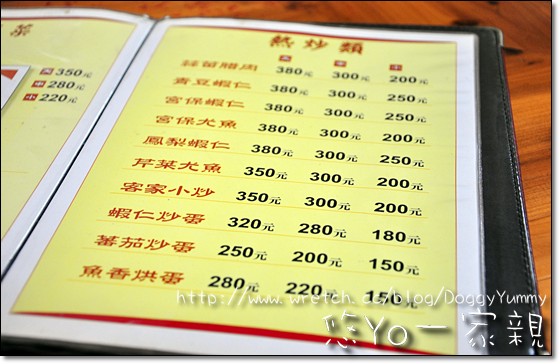 菜
大 350元
中 280元
小 220元
熱炒類
大 中 小
蒜苗臘肉 380元 300元 200元
青豆蝦仁 380元 300元 250元
宮保蝦仁 380元 300元 250元
宮保尤魚 380元 300元 200元
鳳梨蝦仁 380元 300元 250元
芹菜尤魚 350元 300元 200元
客家小炒 350元 300元 200元
蝦仁炒蛋 320元 280元 180元
蕃茄炒蛋 250元 200元 150元
魚香烘蛋 280元 220元 150元
http://www.wretch.cc/blog/DoggyYummy
悠Yo一家親